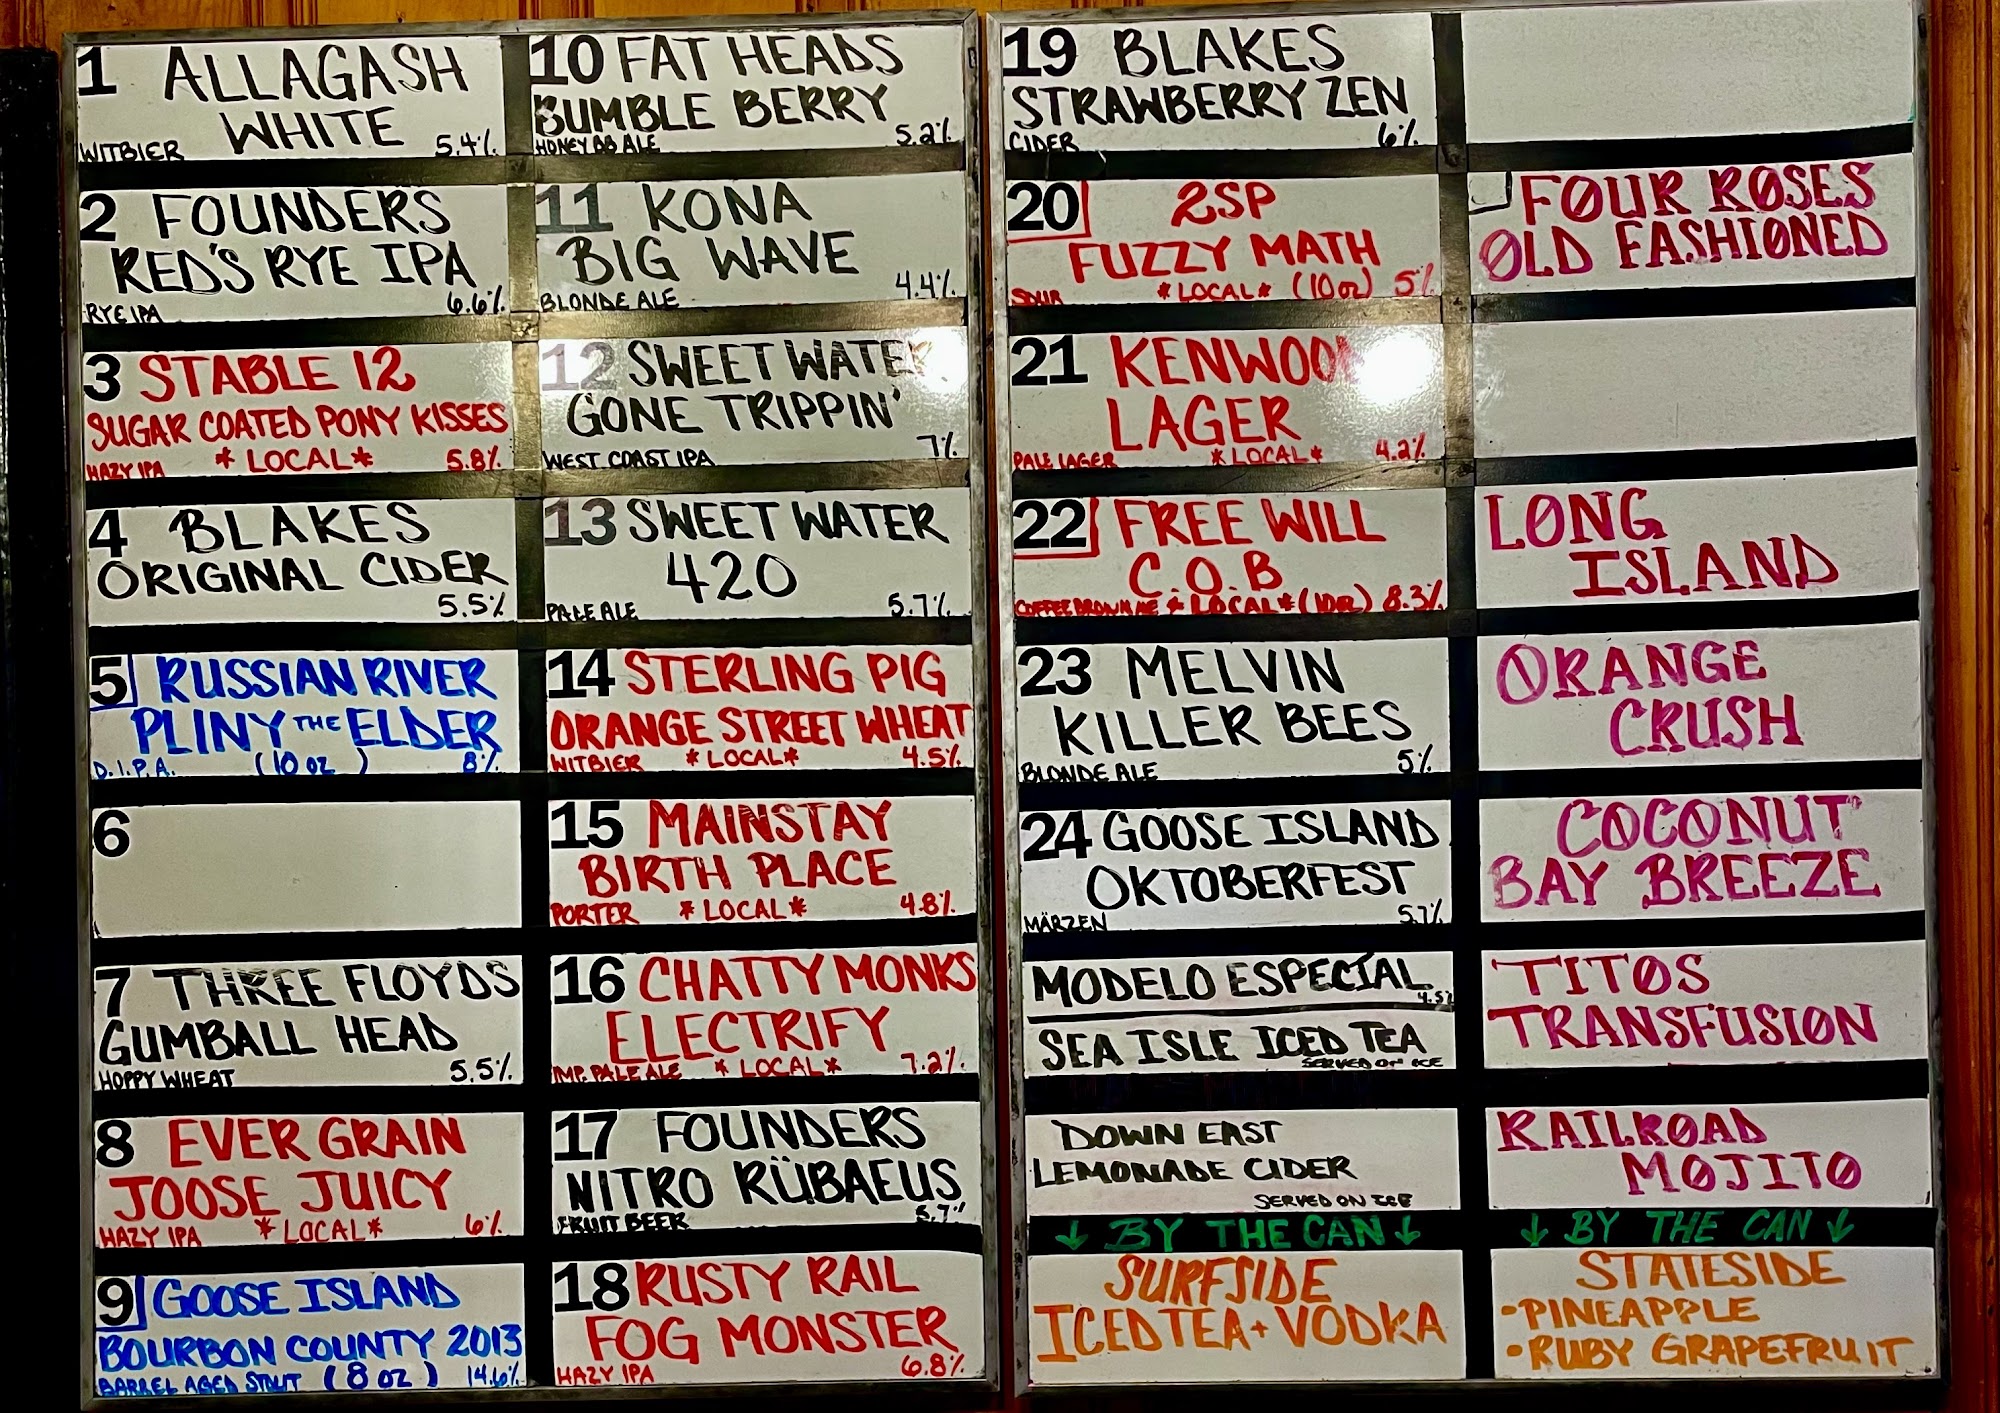 1 ALLAGASH
WHITE
WITBIER 5.4%
2 FOUNDERS
RED'S RYE IPA
RYE IPA 6.6%
3 STABLE 12
SUGAR COATED PONY KISSES
HAZY IPA *LOCAL* 5.8%
4 BLAKES
ORIGINAL CIDER
5.5%
5 RUSSIAN RIVER
PLINY THE ELDER
D.I.P.A. (10 OZ) 8%
6
7 THREE FLOYDS
GUMBALL HEAD
HOPPY WHEAT 5.5%
8 EVER GRAIN
JOOSE JUICY
HAZY IPA *LOCAL* 6%
9 GOOSE ISLAND
BOURBON COUNTY 2013
BARREL AGED STOUT (8 OZ) 14.6%
10 FAT HEADS
BUMBLE BERRY
HONEY BB ALE 5.2%
11 KONA
BIG WAVE
BLONDE ALE 4.4%
12 SWEET WATER
GONE TRIPPIN'
WEST COAST IPA 7%
13 SWEET WATER
420
PALE ALE 5.7%
14 STERLING PIG
ORANGE STREET WHEAT
WITBIER *LOCAL* 4.5%
15 MAINSTAY
BIRTH PLACE
PORTER *LOCAL* 4.8%
16 CHATTY MONKS
ELECTRIFY
IMP. PALE ALE *LOCAL* 7.2%
17 FOUNDERS
NITRO RÜBAEUS
FRUIT BEER 5.7%
18 RUSTY RAIL
FOG MONSTER
HAZY IPA 6.8%
19 BLAKES
STRAWBERRY ZEN
CIDER 6%
20 2SP
FUZZY MATH
SOUR *LOCAL* (10 OZ) 5%
21 KENWOOD
LAGER
PALE LAGER *LOCAL* 4.2%
22 FREE WILL
C.O.B
COFFEE BROWN ALE *LOCAL* (10 OZ) 8.3%
23 MELVIN
KILLER BEES
BLONDE ALE 5%
24 GOOSE ISLAND
OKTOBERFEST
MÄRZEN 5.7%
MODELO ESPECIAL
4.5%
SEA ISLE ICED TEA
SERVED ON ICE
DOWN EAST
LEMONADE CIDER
SERVED ON ICE
↓ BY THE CAN ↓
SURFSIDE
ICED TEA + VODKA
FOUR ROSES
OLD FASHIONED
LONG
ISLAND
ORANGE
CRUSH
COCONUT
BAY BREEZE
TITOS
TRANSFUSION
RAILROAD
MOJITO
↓ BY THE CAN ↓
STATESIDE
•PINEAPPLE
•RUBY GRAPEFRUIT